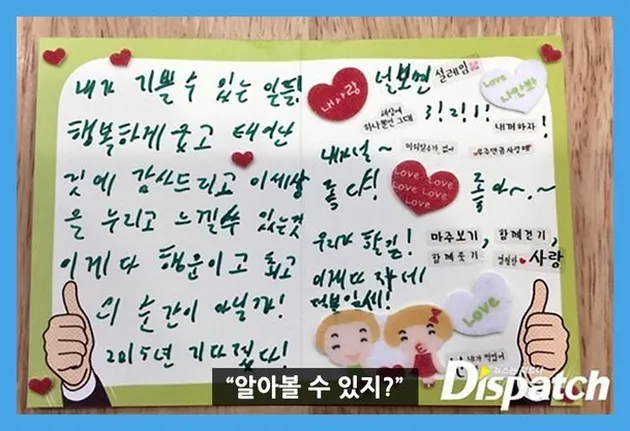 내가 기쁠 수 있는 일들!
행복하게 웃고 태어난
것에 감사드리고 이세상
을 누리고 느낄수 있는것
이게 다 행운이고 최고
의 순간이 아닐까!
2015년 기다렸다!
널보면 설레임
내사랑
Love
나만봐
세상에
하나뿐인 그대
3!2!1!!
내꺼하자!
내가 널~
우주만큼사랑해
좋다!
Love Love
Love Love
Love
좋아~.~
우리가 할일!
마주보기, 함께걷기,
함께웃기
영원한 사랑
이게다 자네
덕분일세!
Love
“알아볼 수 있지?”
Dispatch